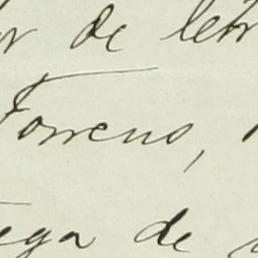 or de letr
Torreno,
ega de